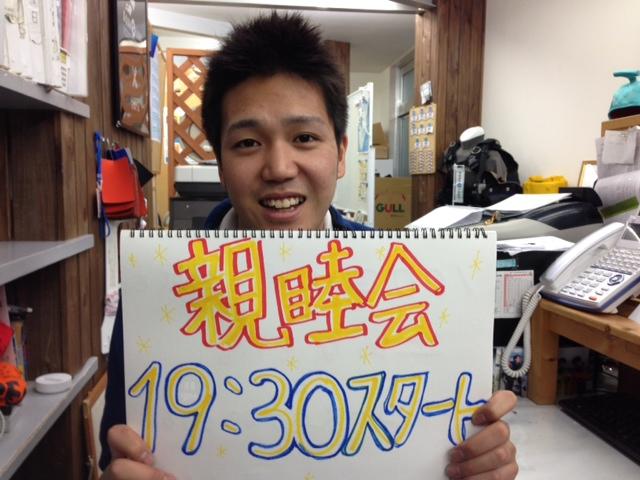 親睦会
19:30スタート
GULL